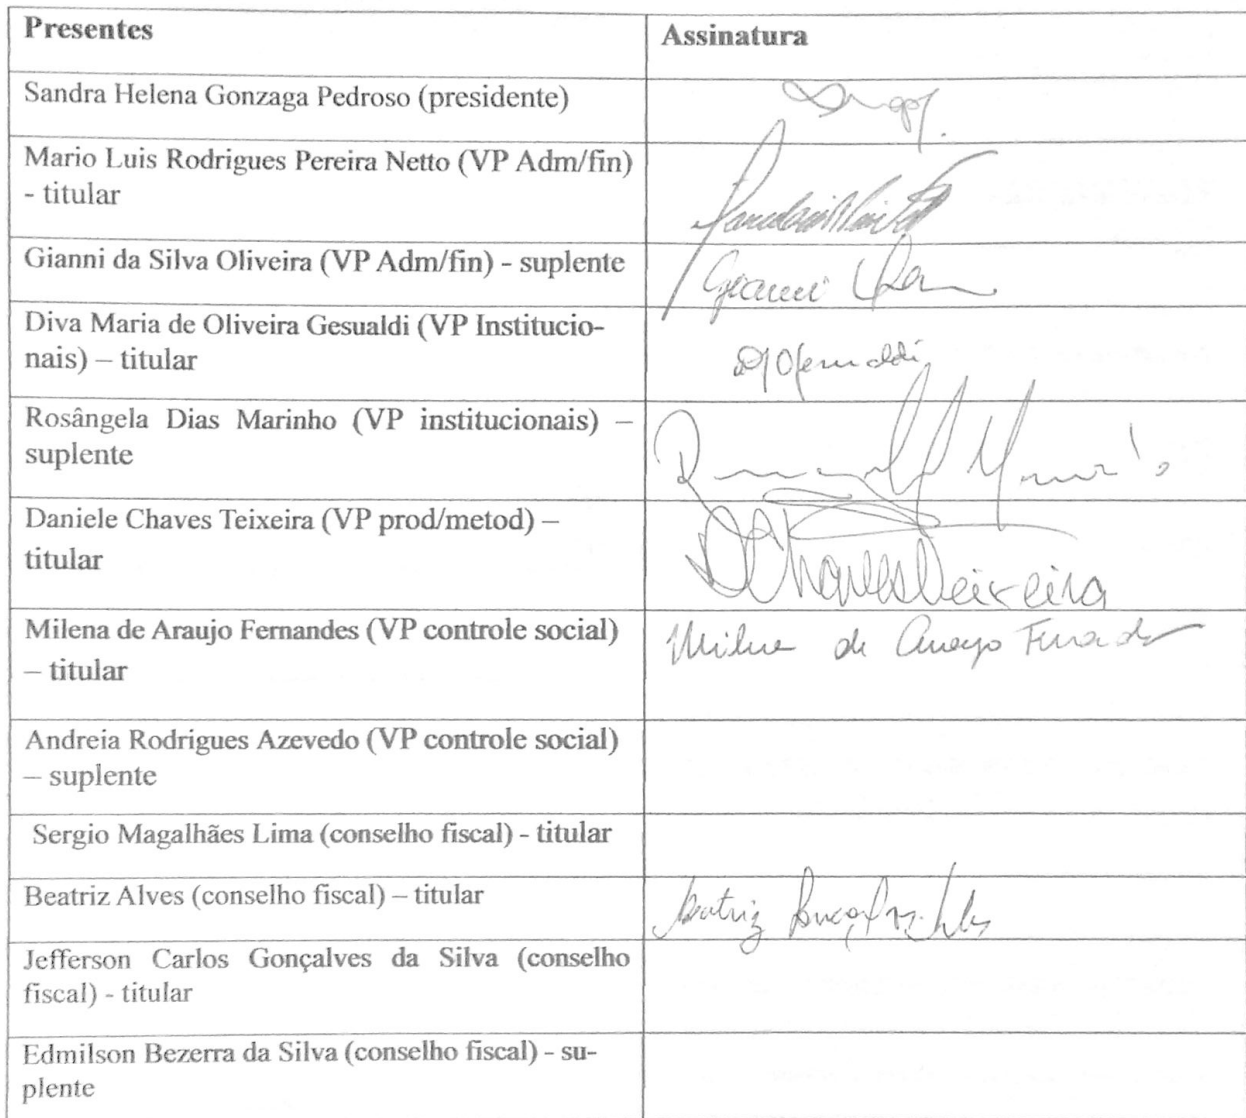 Presentes
Assinatura
Sandra Helena Gonzaga Pedroso (presidente)
Mario Luis Rodrigues Pereira Netto (VP Adm/fin)
- titular
Gianni da Silva Oliveira (VP Adm/fin) - suplente
Gianni
Diva Maria de Oliveira Gesualdi (VP Institucio-
nais) – titular
Rosângela Dias Marinho (VP institucionais) –
suplente
Daniele Chaves Teixeira (VP prod/metod) –
titular
DChavesTeixeira
Milena de Araujo Fernandes (VP controle social)
– titular
Milena de Araujo Fernandes
Andreia Rodrigues Azevedo (VP controle social)
– suplente
Sergio Magalhães Lima (conselho fiscal) - titular
Beatriz Alves (conselho fiscal) – titular
Beatriz
Jefferson Carlos Gonçalves da Silva (conselho
fiscal) - titular
Edmilson Bezerra da Silva (conselho fiscal) - su-
plente